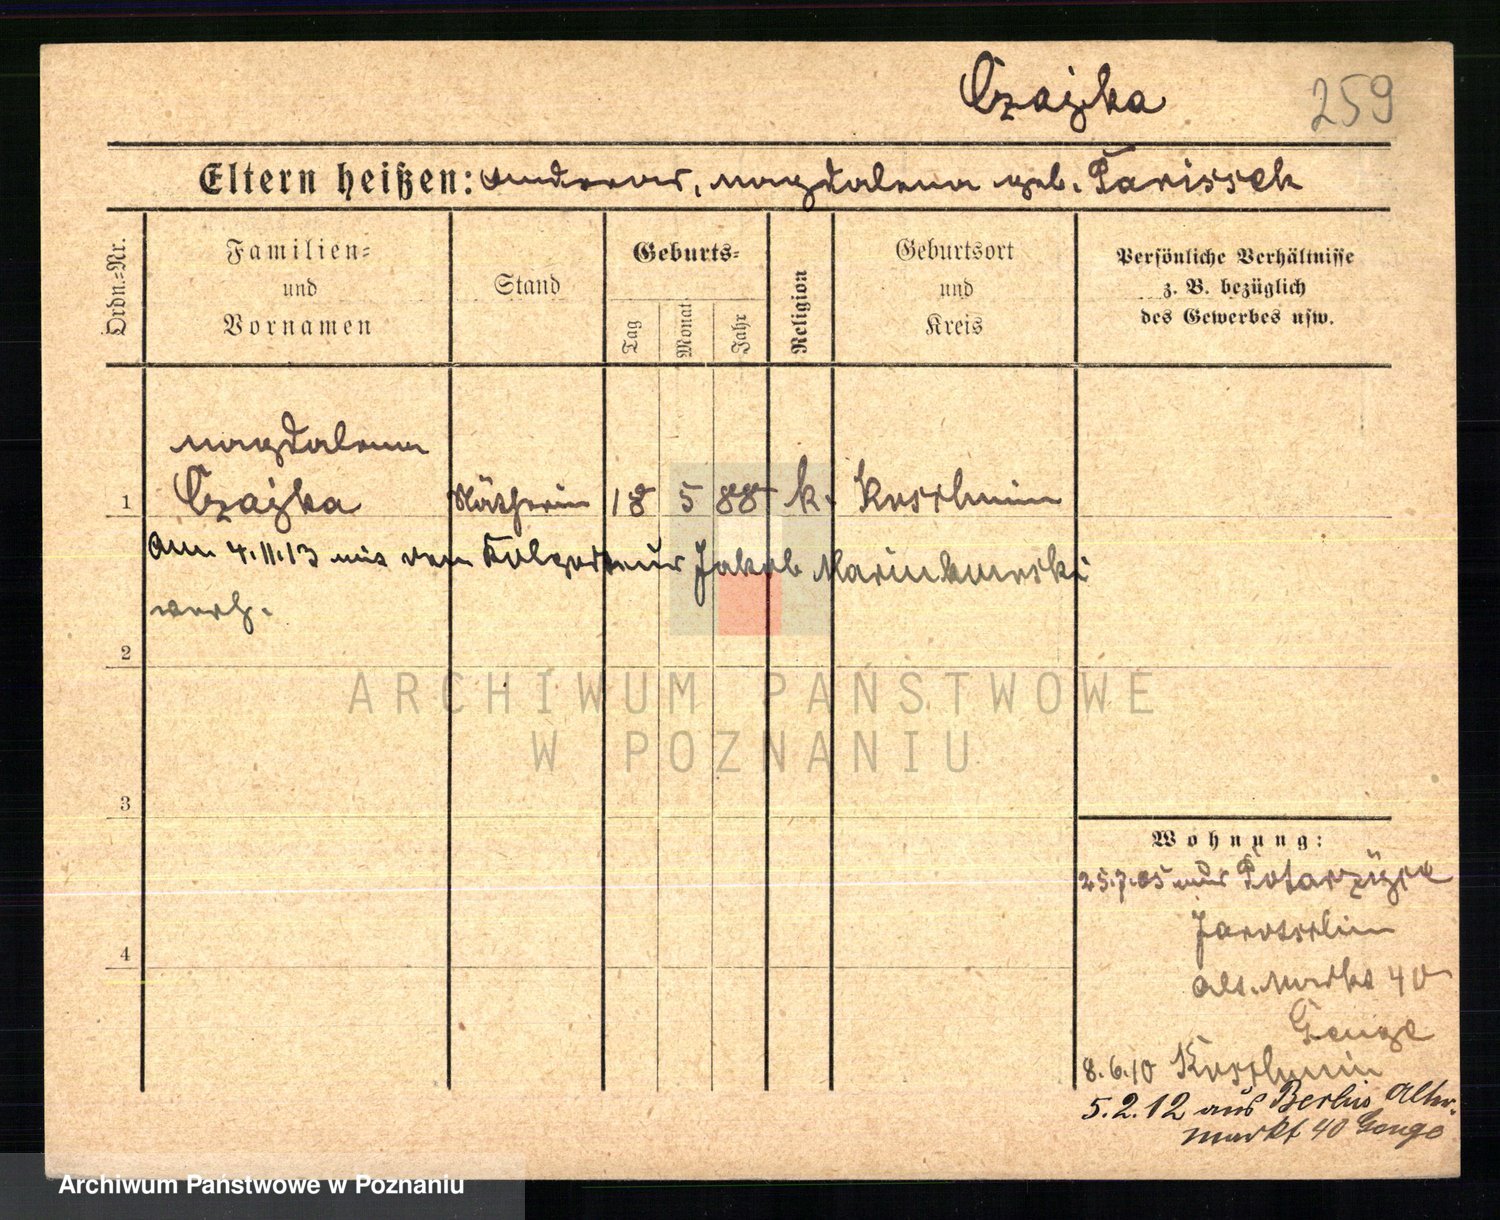 Czajka
259
Eltern heißen: Andreas, Magdalena geb. Parissek
Ordn.=Nr.
Familien=
und
Vornamen
Stand
Geburts=
Tag
Monat
Jahr
Religion
Geburtsort
und
Kreis
Persönliche Verhältnisse
z. B. bezüglich
des Gewerbes usw.
Magdalena
1 Czajka Nätherin 18 5 88 k. Koschmin
Am 4.11.13 mit dem Kolporteur Jakob Marinkowski
verh.
2
ARCHIWUM PAŃSTWOWE
W POZNANIU
3
Wohnung:
25.7.05 aus Potarzyce
Jarotschin
Alt. Markt 40
8.6.10 Koschmin
5.2.12 aus Berlin Alter
markt 40
4
Archiwum Państwowe w Poznaniu